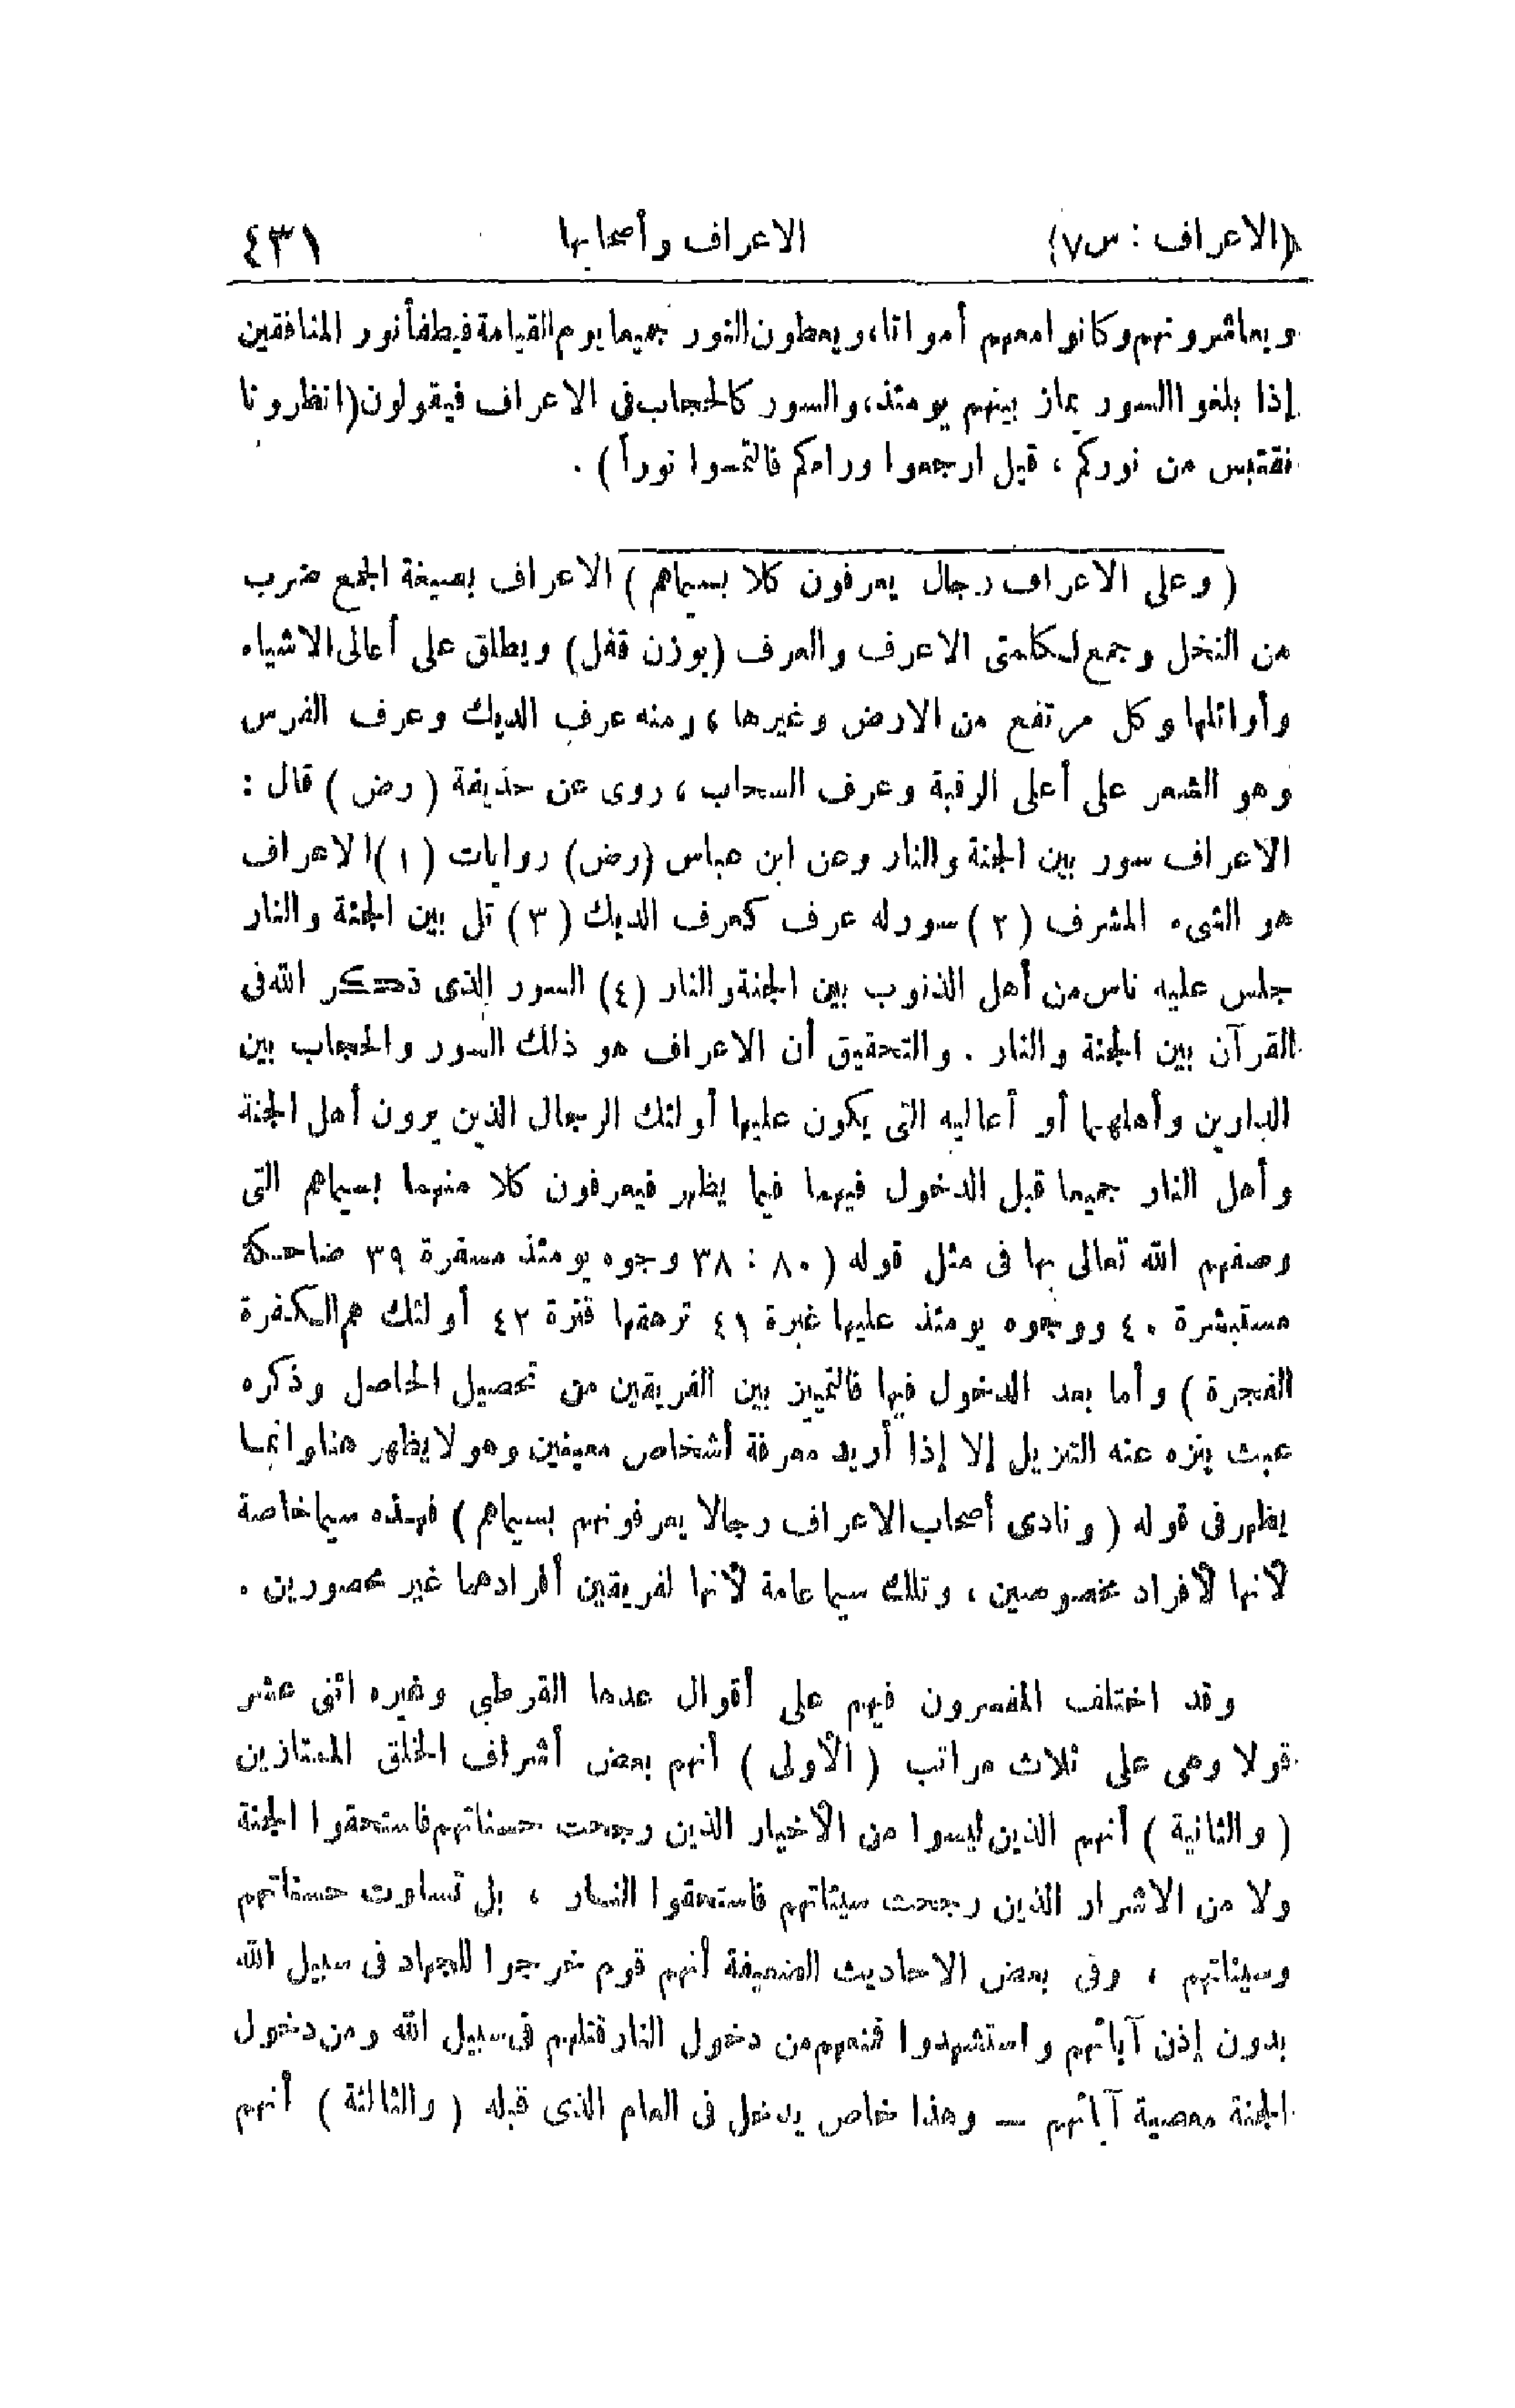 (الاعراف : س٧) الاعراف وأصحابها ٤٣١
ويعاشرونهم وكانوا معهم أمواتا، ويعطون النور جميعا يوم القيامة فيطفأ نور المنافقين
إذا بلغوا السور يماز بينهم يومئذ، والسور كالحجاب فى الاعراف فيقولون (انظرونا
نقتبس من نوركم ، قيل ارجعوا وراءكم فالتمسوا نوراً ) .
( وعلى الاعراف رجال يعرفون كلا بسيماهم ) الاعراف بصيغة الجمع ضرب
من النخل وجمع لكلمتى الاعرف والعرف (بوزن قفل) ويطلق على أعالى الاشياء
وأوائلها وكل مرتفع من الارض وغيرها ، ومنه عرف الديك وعرف الفرس
وهو الشعر على أعلى الرقبة وعرف السحاب ، روى عن حذيفة ( رض ) قال :
الاعراف سور بين الجنة والنار وعن ابن عباس (رض) روايات ( ١ ) الاعراف
هو الشىء المشرف ( ٢ ) سور له عرف كعرف الديك ( ٣ ) تل بين الجنة والنار
جلس عليه ناس من أهل الذنوب بين الجنة والنار (٤) السور الذى ذكر الله فى
القرآن بين الجنة والنار . والتحقيق أن الاعراف هو ذلك السور والحجاب بين
الدارين وأهلهما أو أعاليه التى يكون عليها أولئك الرجال الذين يرون أهل الجنة
وأهل النار جميعا قبل الدخول فيهما فيما يظهر فيعرفون كلا منهما بسيماهم التى
وصفهم الله تعالى بها فى مثل قوله ( ٨٠ : ٣٨ وجوه يومئذ مسفرة ٣٩ ضاحكة
مستبشرة ٤٠ ووجوه يومئذ عليها غبرة ٤١ ترهقها قترة ٤٢ أولئك هم الكفرة
الفجرة ) وأما بعد الدخول فيها فالتمييز بين الفريقين من تحصيل الحاصل وذكره
عبث ينزه عنه التنزيل إلا إذا أريد معرفة أشخاص معينين وهو لا يظهر هنا وانما
يظهر فى قوله ( ونادى أصحاب الاعراف رجالا يعرفونهم بسيماهم ) فهذه سيما خاصة
لأنها لأفراد مخصوصين ، وتلك سيما عامة لأنها لفريقين أفرادهما غير محصورين .
وقد اختلف المفسرون فيهم على أقوال عدها القرطبي وغيره اثنى عشر
قولا وهى على ثلاث مراتب ( الأولى ) أنهم بعض أشراف الخلق الممتازين
( والثانية ) أنهم الذين ليسوا من الأخيار الذين رجحت حسناتهم فاستحقوا الجنة
ولا من الاشرار الذين رجحت سيئاتهم فاستحقوا النار ، بل تساوت حسناتهم
وسيئاتهم ، وفى بعض الاحاديث الضعيفة أنهم قوم خرجوا للجهاد فى سبيل الله
بدون إذن آبائهم واستشهدوا فمنعهم من دخول النار قتلهم فى سبيل الله ومن دخول
الجنة معصية آبائهم — وهذا خاص يدخل فى العام الذى قبله ( والثالثة ) أنهم